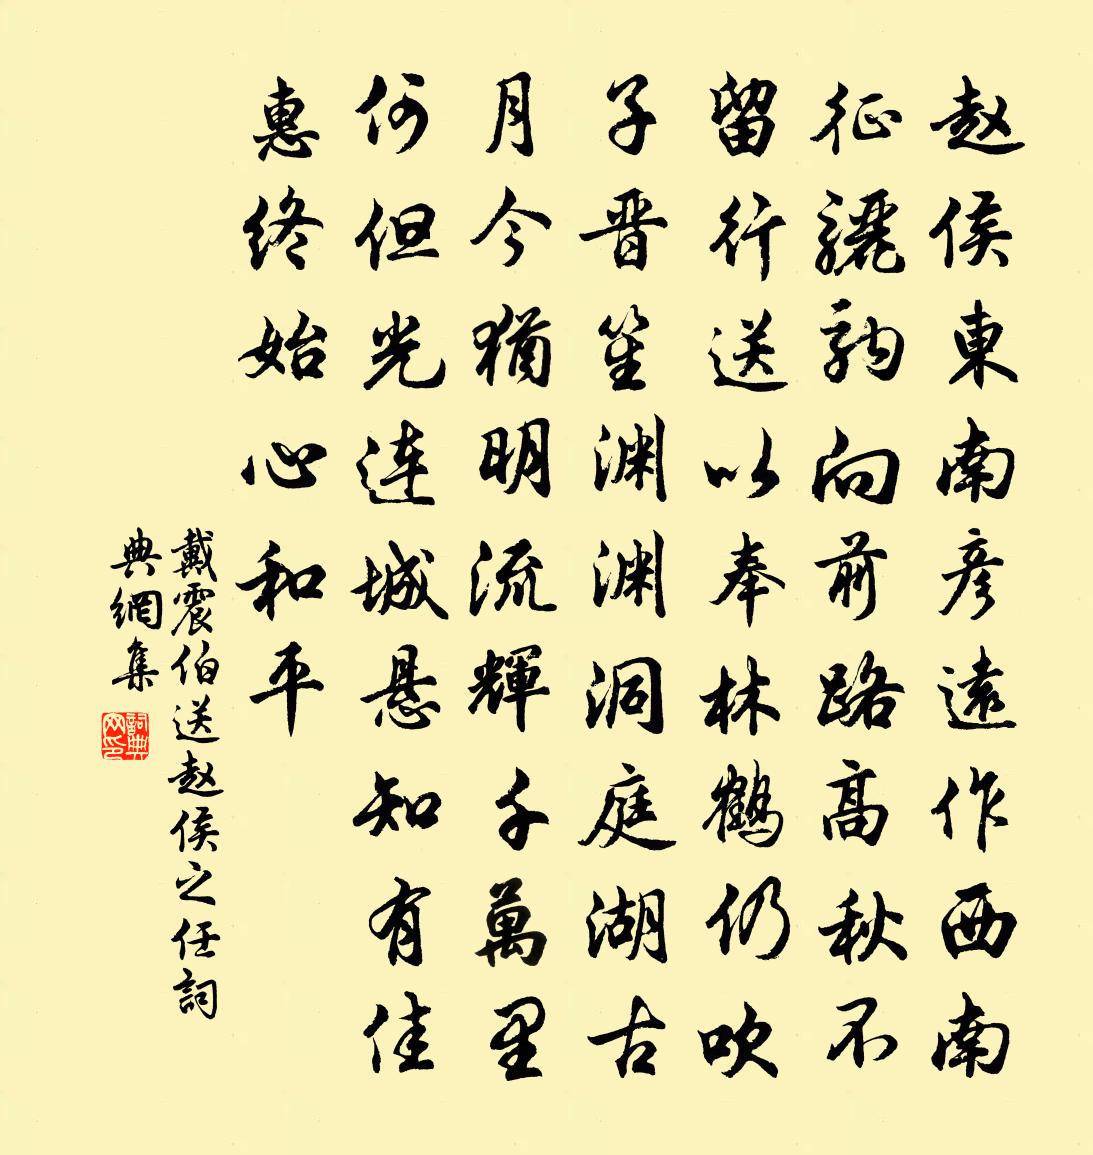 赵侯東南彦遠作西南
征驪駒向前路高秋不
留行送以奉林鶴仍吹
子晋笙渊渊洞庭湖古
月今猶明流輝千萬里
何但光連城悬知有佳
惠终始心和平
戴震伯送赵侯之任詞
典網集
詞典网印